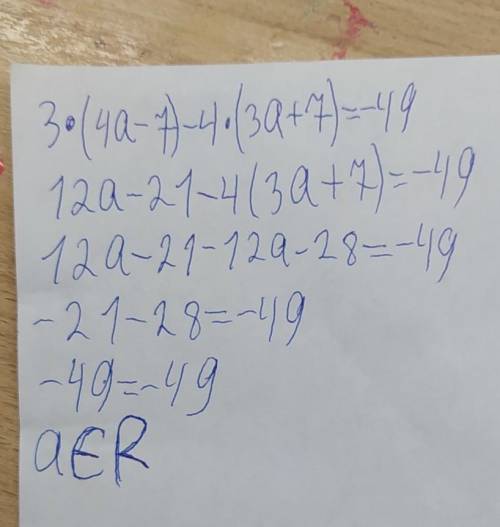 3•(4a-7)-4•(3a+7)=-49
12a-21-4(3a+7)=-49
12a-21-12a-28=-49
-21-28=-49
-49=-49
a∈R